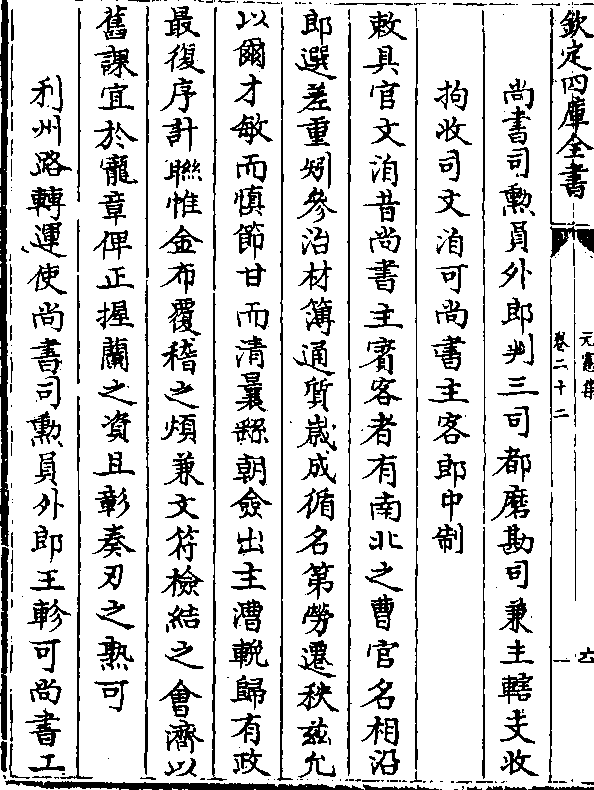 欽定四庫全書
元憲集
卷二十二
六
尚書司勲員外郎判三司都磨勘司兼主轄支收
拘收司文洎可尚書主客郎中制
敕具官文洎昔尚書主賓客者有南北之曹官名相沿
郎選差重矧參治材簿通質歲成循名第勞遷秩兹允
以爾才敏而慎節甘而清曩繇朝僉出主漕輓歸有政
最復序計聨惟金布覆稽之煩兼文符檢結之會濟以
舊課宜於寵章俾正握蘭之資且彰奏刃之熟可
利州路轉運使尚書司勲員外郎王軫可尚書工